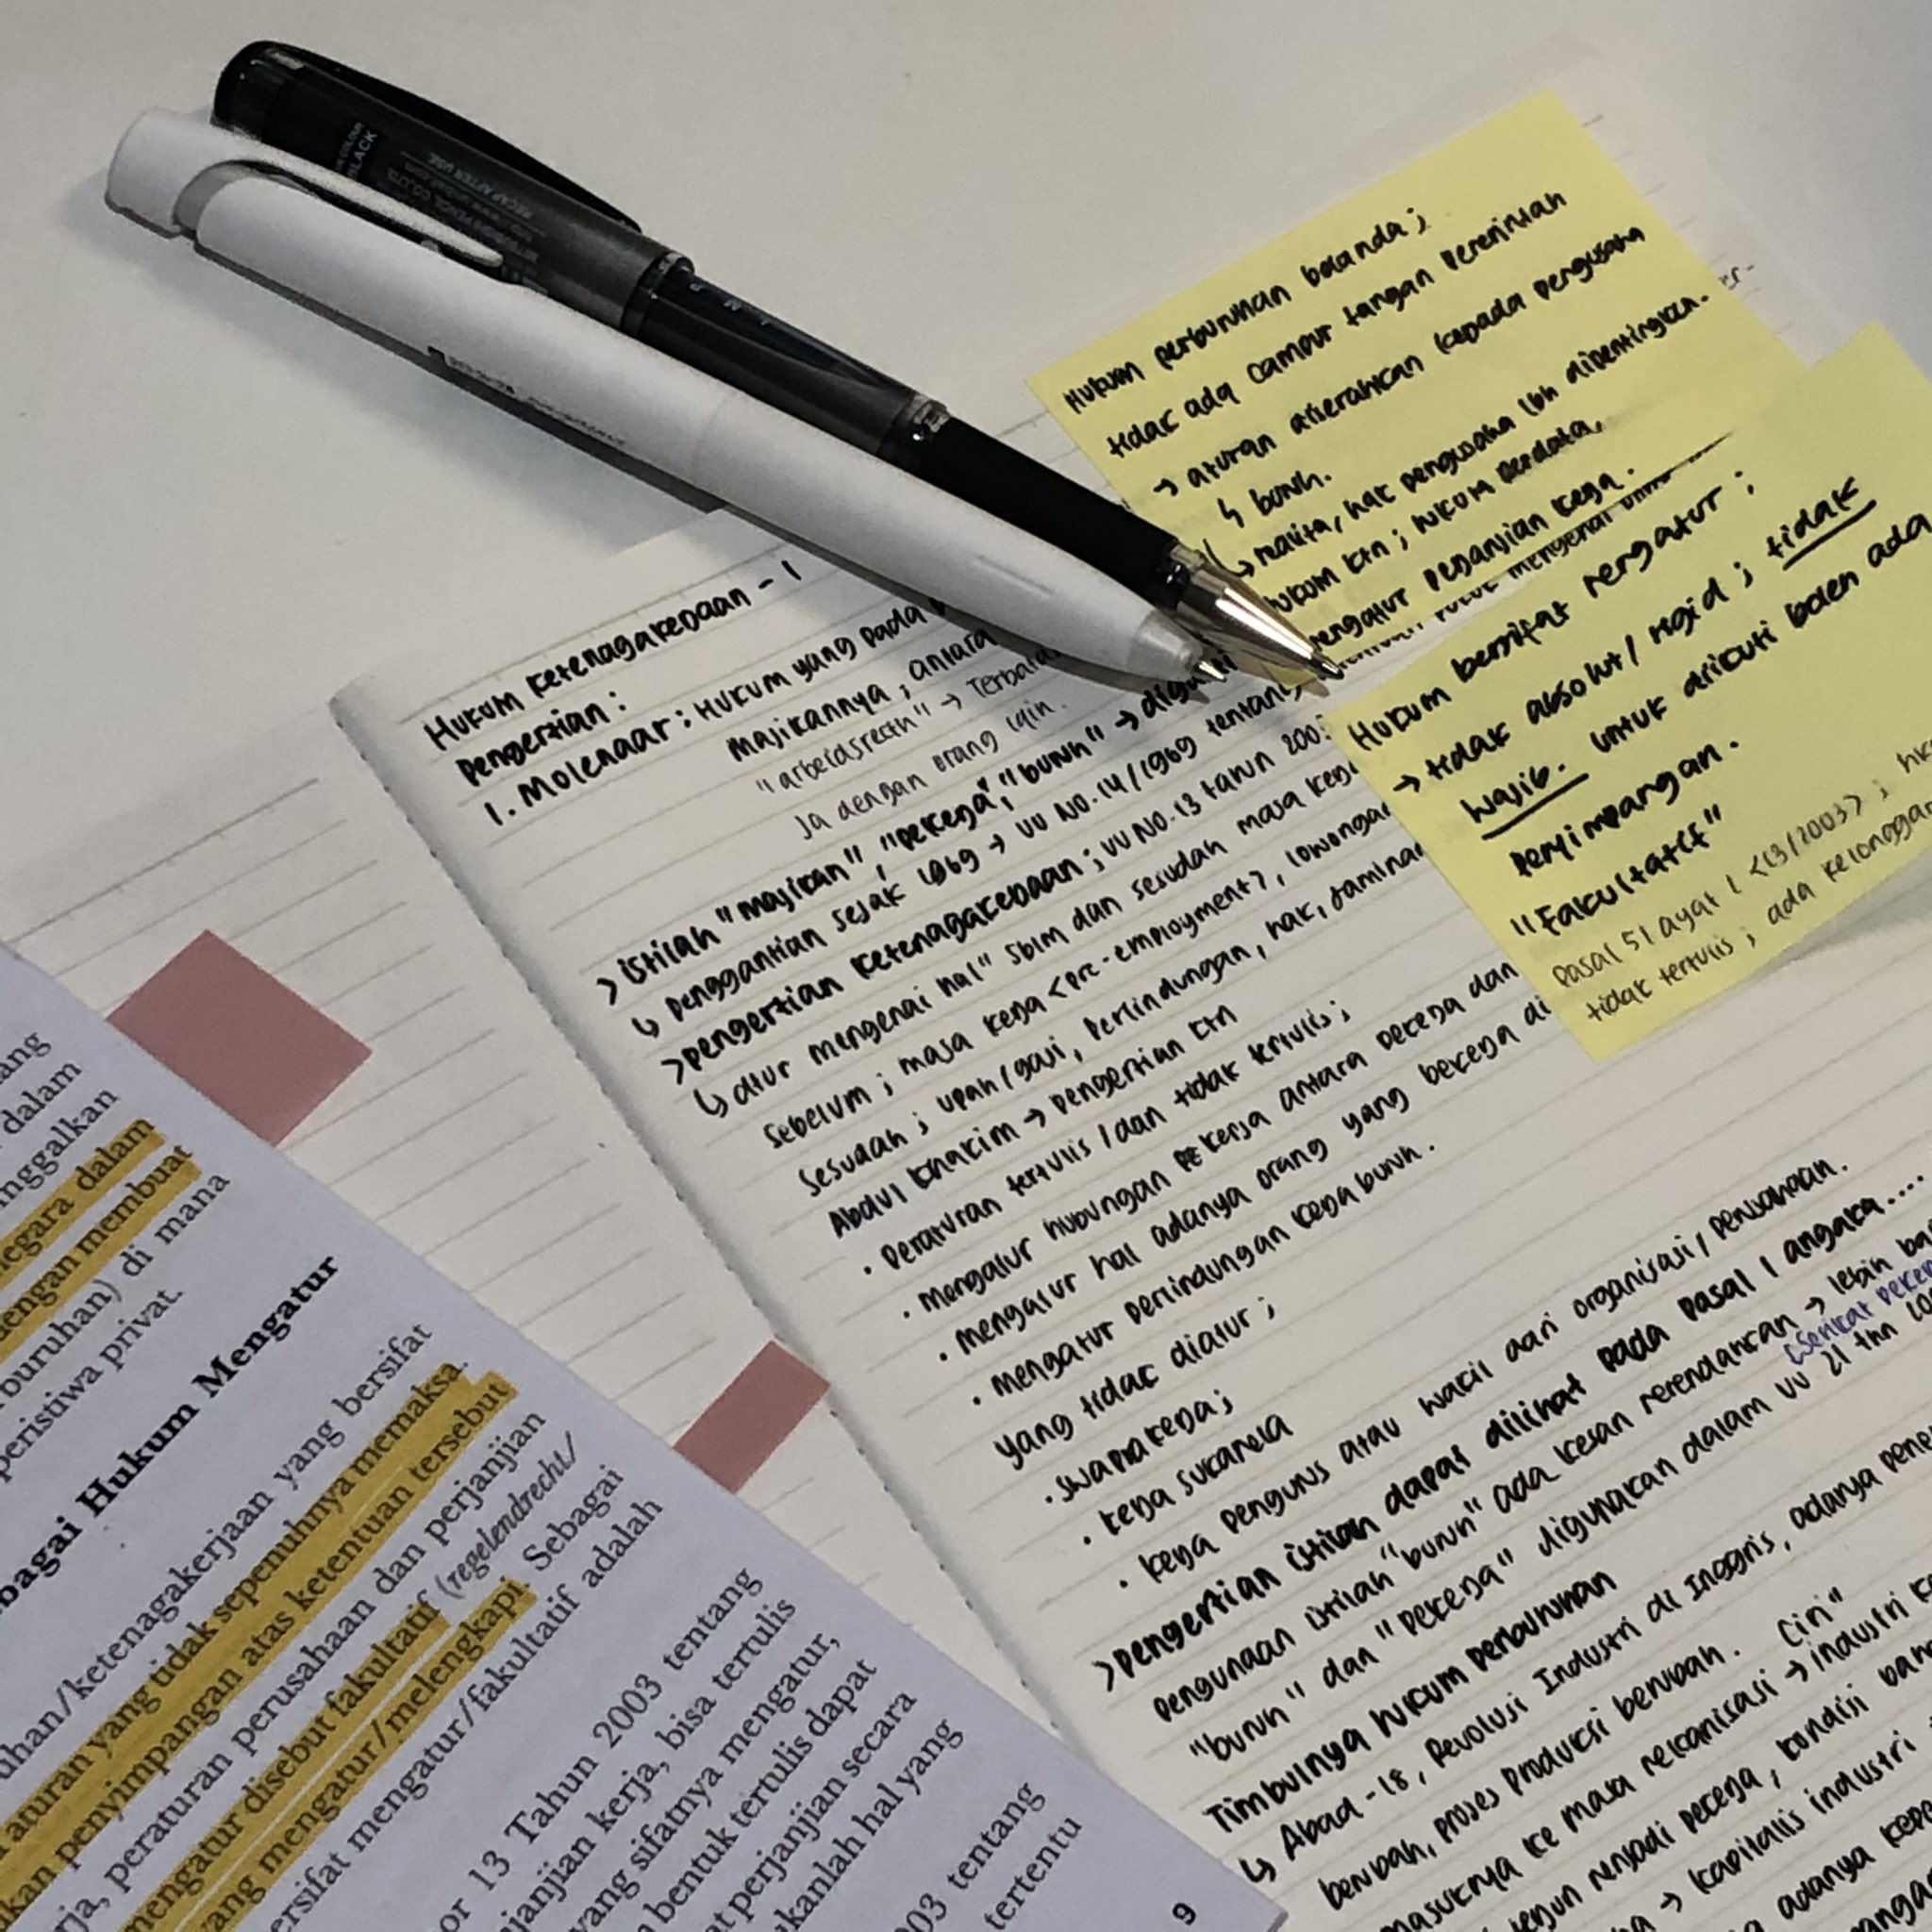 Hukum perburuhan belanda ;
tidak ada campur tangan pemerintah
→ aturan diserahkan kepada pengusaha
↳ buruh.
↳ realita, hak pengusaha lbh dipentingkan.
hukum ktn ; hukum perdata,
mengatur perjanjian kerja.
Hukum bersifat mengatur ;
→ tidak absolut / rigid ; tidak
wajib. untuk diikuti boleh ada
penyimpangan.
"Fakultatif"
pasal 51 ayat 1 <13/2003> ;
tidak tertulis ; ada kelonggar
Hukum Ketenagakerjaan - 1
Pengertian :
1. Molenaar : Hukum yang pada
Majikannya ; antara
"arbeidsrecht" → Terbatas
ja dengan orang lain.
> istilah "majikan", "pekerja", "buruh" → diganti
↳ penggantian sejak 1969 → UU NO. 14 / 1969 tentang
> pengertian ketenagakerjaan ; UU NO. 13 tahun 2003
↳ atur mengenai hal" sblm dan sesudah masa kerja
Sebelum ; masa kerja <pre-employment>, lowongan
Sesudah ; upah / gaji, perlindungan, hak, jaminan
Abdul Khakim → pengertian ktn
• Peraturan tertulis / dan tidak tertulis ;
• Mengatur hubungan pekerja antara pekerja dan
• mengatur hal adanya orang yang bekerja di
• mengatur perlindungan kerja buruh.
yang tidak diatur ;
• swapekerja ;
• kerja sukarela
• kerja pengurus atau wakil dari organisasi / perusahaan.
> pengertian istilah dapat dilihat pada pasal 1 angka ....
pengunaan istilah "buruh" ada kesan merendahkan → lebih
"buruh" dan "pekerja" digunakan dalam UU 21 thn
<serikat
Timbulnya hukum perburuhan
↳ Abad -18, Revolusi Industri di Inggris, adanya
berubah, proses produksi berubah. Ciri"
masuknya ke masa mekanisasi → industri
menjadi pekerja, kondisi
→ kapitalis industri
adanya
dalam
nggalkan
negara dalam
dengan membuat
buruhan) di mana
peristiwa privat.
bagai Hukum Mengatur
uhan/ketenagakerjaan yang bersifat
aturan yang tidak sepenuhnya memaksa.
kan penyimpangan atas ketentuan tersebut
rja, peraturan perusahaan dan perjanjian
mengatur disebut fakultatif (regelendrecht/
yang mengatur/melengkapi. Sebagai
ersifat mengatur/fakultatif adalah
or 13 Tahun 2003 tentang
njanjian kerja, bisa tertulis
yang sifatnya mengatur,
m bentuk tertulis dapat
at perjanjian secara
ukanlah hal yang
003 tentang
tertentu
9
BLACK
RECAP AFTER USE